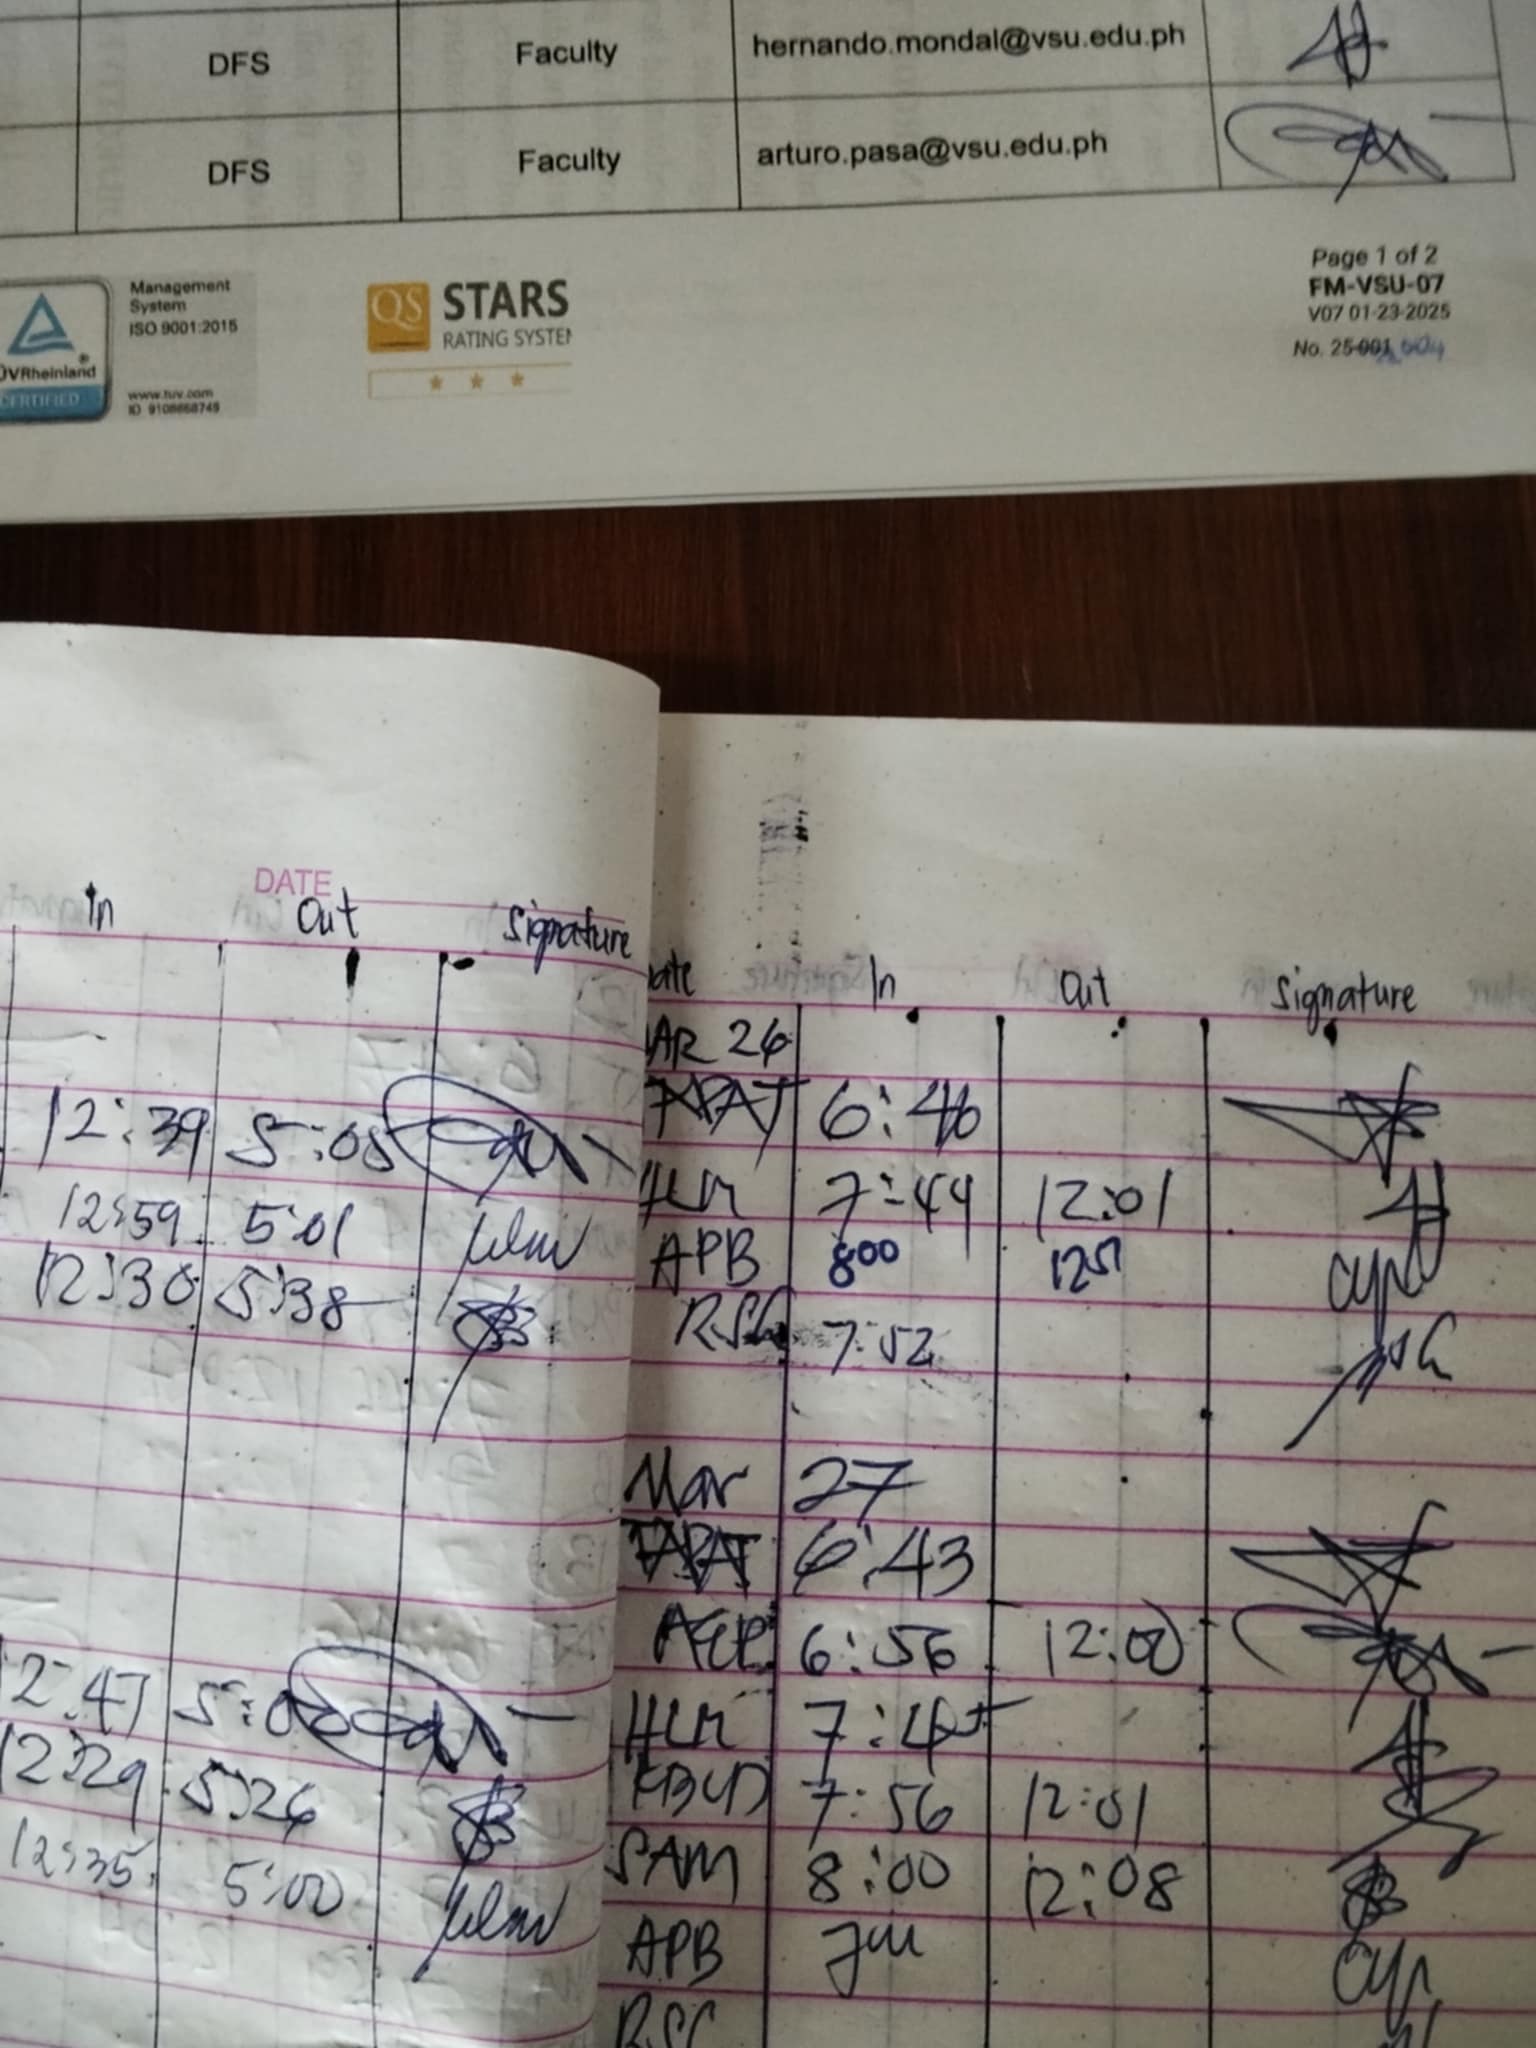 DFS Faculty hernando.mondal@vsu.edu.ph
DFS Faculty arturo.pasa@vsu.edu.ph
Management
System
ISO 9001:2015
www.tuv.com
ID 9108658745
ÜVRheinland
CERTIFIED
QS STARS
RATING SYSTEM
Page 1 of 2
FM-VSU-07
V07 01-23-2025
No. 25-001 004
DATE
In Out Signature
12:39 5:05
12:59 5:01
12:30 5:38
12:47 5:03
12:29 5:26
12:35 5:00
ate In Out Signature
AR 26
TAPAT 6:46
HLM 7:44 12:01
APB 800 1201
RSC 7:52
Mar 27
TAPAT 6:43
6:56 12:00
HLM 7:45
7:56 12:01
SAM 8:00 12:08
APB
RSC